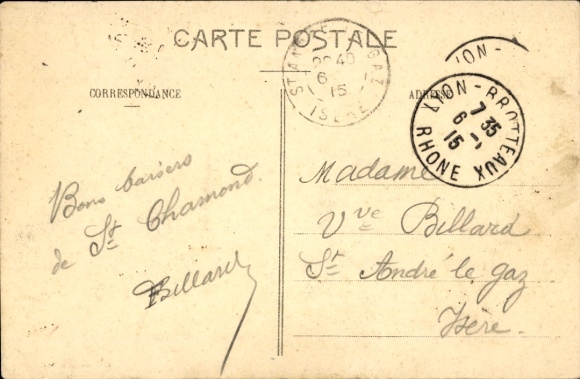 CARTE POSTALE
CORRESPONDANCE
ADRESSE
ST ANDRÉ GAZ
20 40
6
15
ISÈRE
LYON -
LYON - BROTTEAUX
7 35
6 - 1
15
RHONE
Bons baisers
de St Chamond.
Billard
Madame
Vve Billard
St André le gaz
Isère.